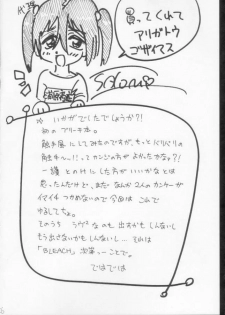 買ってくれて
アリガトウ
ゴザイマス
いかがでしたでしょうか?!
初のブリーチ本。
触手屋にしてみたのですが、もっとバリバリ
触手ー!!ってカンジの方がよかったかな?!
一護とのHにした方がいいかなとは
思ったんだけど、まだなんか2人のカンケーが
イマイチつかめないので今回はこんで
ゆるしてちょ。
そのうちラヴ²なのも出すかもしんないし
もう出さないかもしんないし… それは
「BLEACH」次第っーことで。
ではでは